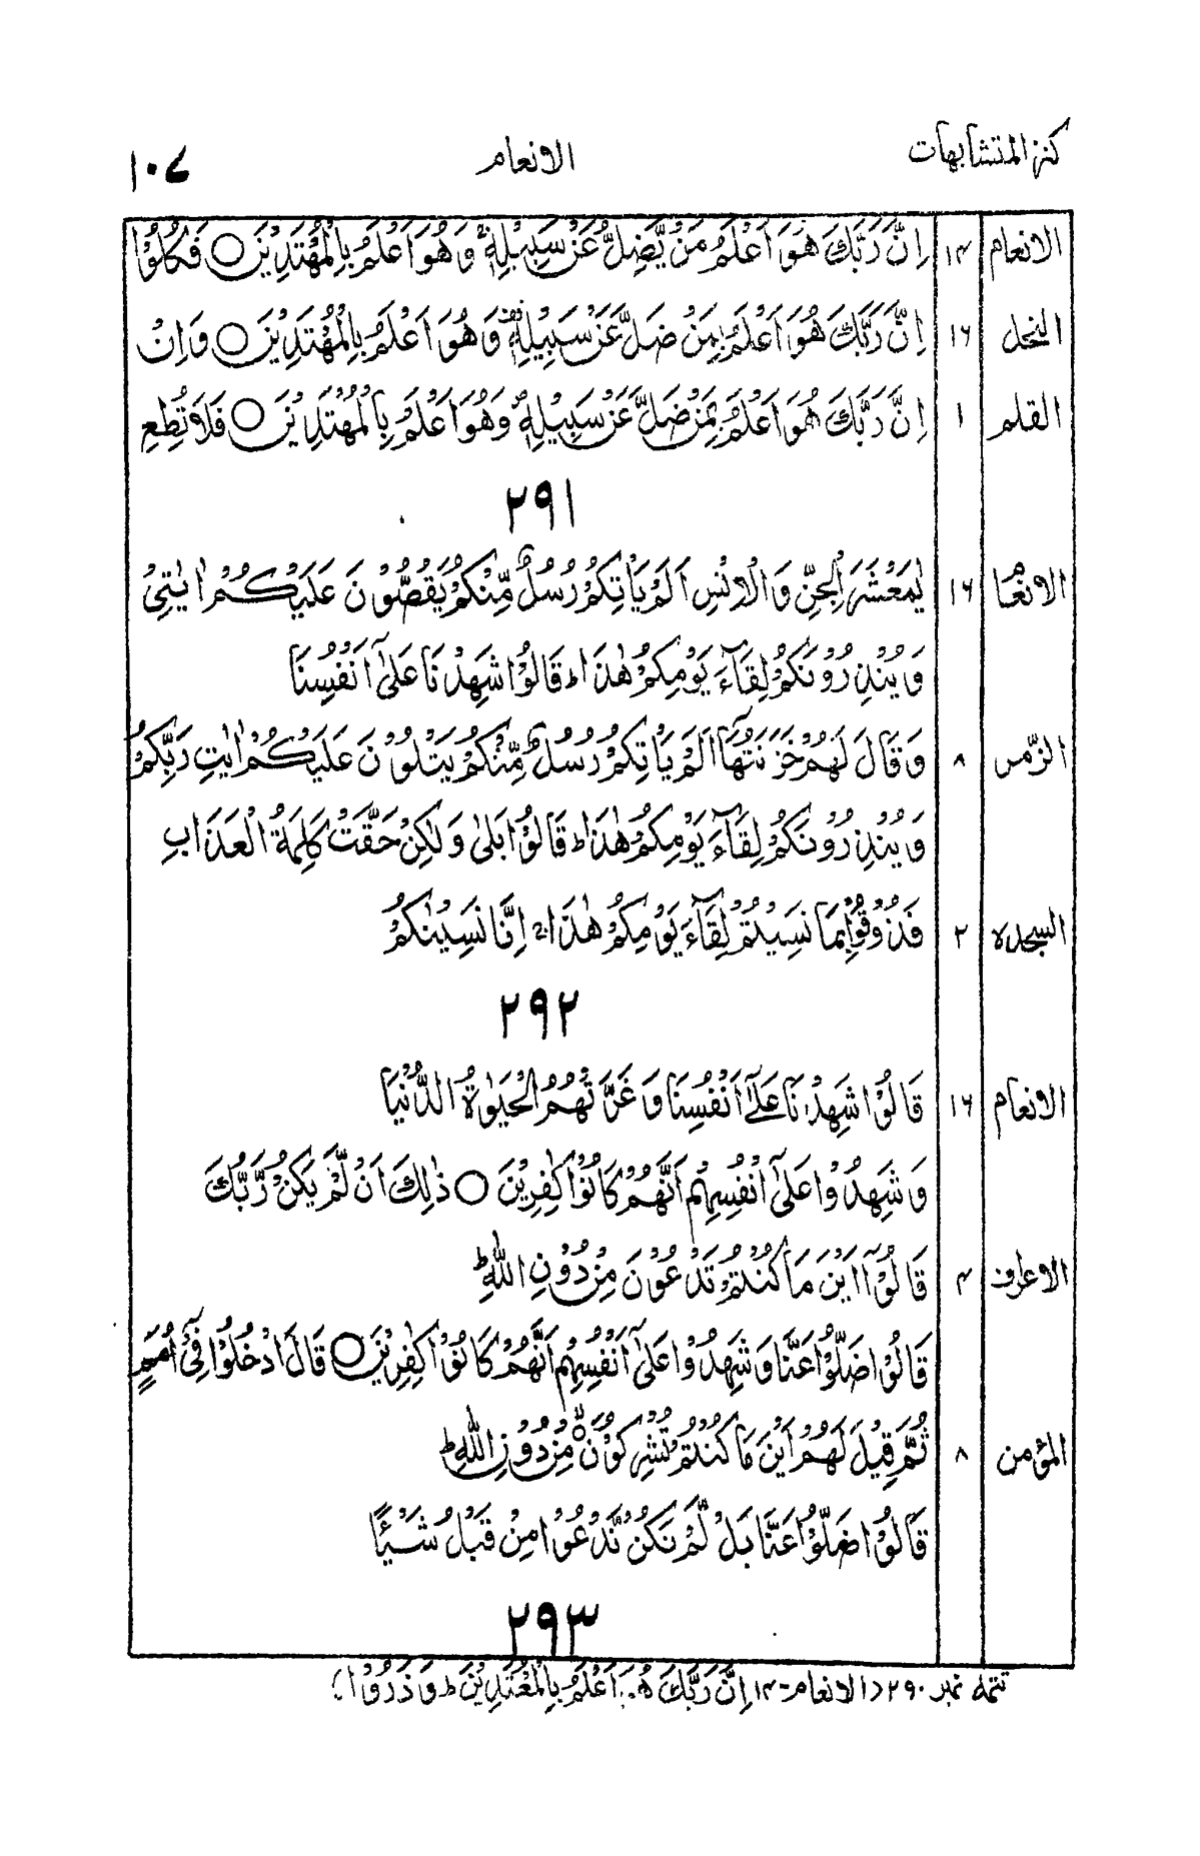 كنز المتشابهات الانعام ١٠٧
الانعام ١٤ اِنَّ رَبَّكَ هُوَ اَعْلَمُ مَنْ يَّضِلُّ عَنْ سَبِيْلِهٖ ۚ وَهُوَ اَعْلَمُ بِالْمُهْتَدِيْنَ ○ فَكُلُوْا
النحل ١٦ اِنَّ رَبَّكَ هُوَ اَعْلَمُ بِمَنْ ضَلَّ عَنْ سَبِيْلِهٖ وَهُوَ اَعْلَمُ بِالْمُهْتَدِيْنَ ○ وَاِنْ
القلم ١ اِنَّ رَبَّكَ هُوَ اَعْلَمُ بِمَنْ ضَلَّ عَنْ سَبِيْلِهٖ وَهُوَ اَعْلَمُ بِالْمُهْتَدِيْنَ ○ فَلَا تُطِعِ
٢٩١
الانعام ١٦ يٰمَعْشَرَ الْجِنِّ وَالْاِنْسِ اَلَمْ يَاْتِكُمْ رُسُلٌ مِّنْكُمْ يَقُصُّوْنَ عَلَيْكُمْ اٰيٰتِيْ
وَيُنْذِرُوْنَكُمْ لِقَآءَ يَوْمِكُمْ هٰذَا ط قَالُوْا شَهِدْنَا عَلٰٓى اَنْفُسِنَا
الزّمر ٨ وَقَالَ لَهُمْ خَزَنَتُهَآ اَلَمْ يَاْتِكُمْ رُسُلٌ مِّنْكُمْ يَتْلُوْنَ عَلَيْكُمْ اٰيٰتِ رَبِّكُمْ
وَيُنْذِرُوْنَكُمْ لِقَآءَ يَوْمِكُمْ هٰذَا ط قَالُوْا بَلٰى وَلٰكِنْ حَقَّتْ كَلِمَةُ الْعَذَابِ
السجدة ٢ فَذُوْقُوْا بِمَا نَسِيْتُمْ لِقَآءَ يَوْمِكُمْ هٰذَا ۚ اِنَّا نَسِيْنٰكُمْ
٢٩٢
الانعام ١٦ قَالُوْا شَهِدْنَا عَلٰٓى اَنْفُسِنَا وَغَرَّتْهُمُ الْحَيٰوةُ الدُّنْيَا
وَشَهِدُوْا عَلٰٓى اَنْفُسِهِمْ اَنَّهُمْ كَانُوْا كٰفِرِيْنَ ○ ذٰلِكَ اَنْ لَّمْ يَكُنْ رَّبُّكَ
الاعراف ٤ قَالُوْٓا اَيْنَ مَا كُنْتُمْ تَدْعُوْنَ مِنْ دُوْنِ اللّٰهِ ط
قَالُوْا ضَلُّوْا عَنَّا وَشَهِدُوْا عَلٰٓى اَنْفُسِهِمْ اَنَّهُمْ كَانُوْا كٰفِرِيْنَ ○ قَالَ ادْخُلُوْا فِيْٓ اُمَمٍ
المؤمن ٨ ثُمَّ قِيْلَ لَهُمْ اَيْنَ مَا كُنْتُمْ تُشْرِكُوْنَ ۙ مِنْ دُوْنِ اللّٰهِ ط
قَالُوْا ضَلُّوْا عَنَّا بَلْ لَّمْ نَكُنْ نَّدْعُوْا مِنْ قَبْلُ شَيْـًٔا
٢٩٣
تتمہ نمبر ٢٩٠ (الانعام - ١٤ اِنَّ رَبَّكَ هُوَ اَعْلَمُ بِالْمُعْتَدِيْنَ ط وَذَرُوْا)